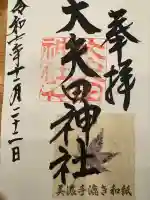 奉拝
大矢田神社
令和二年十一月二十二日
美濃手漉き和紙